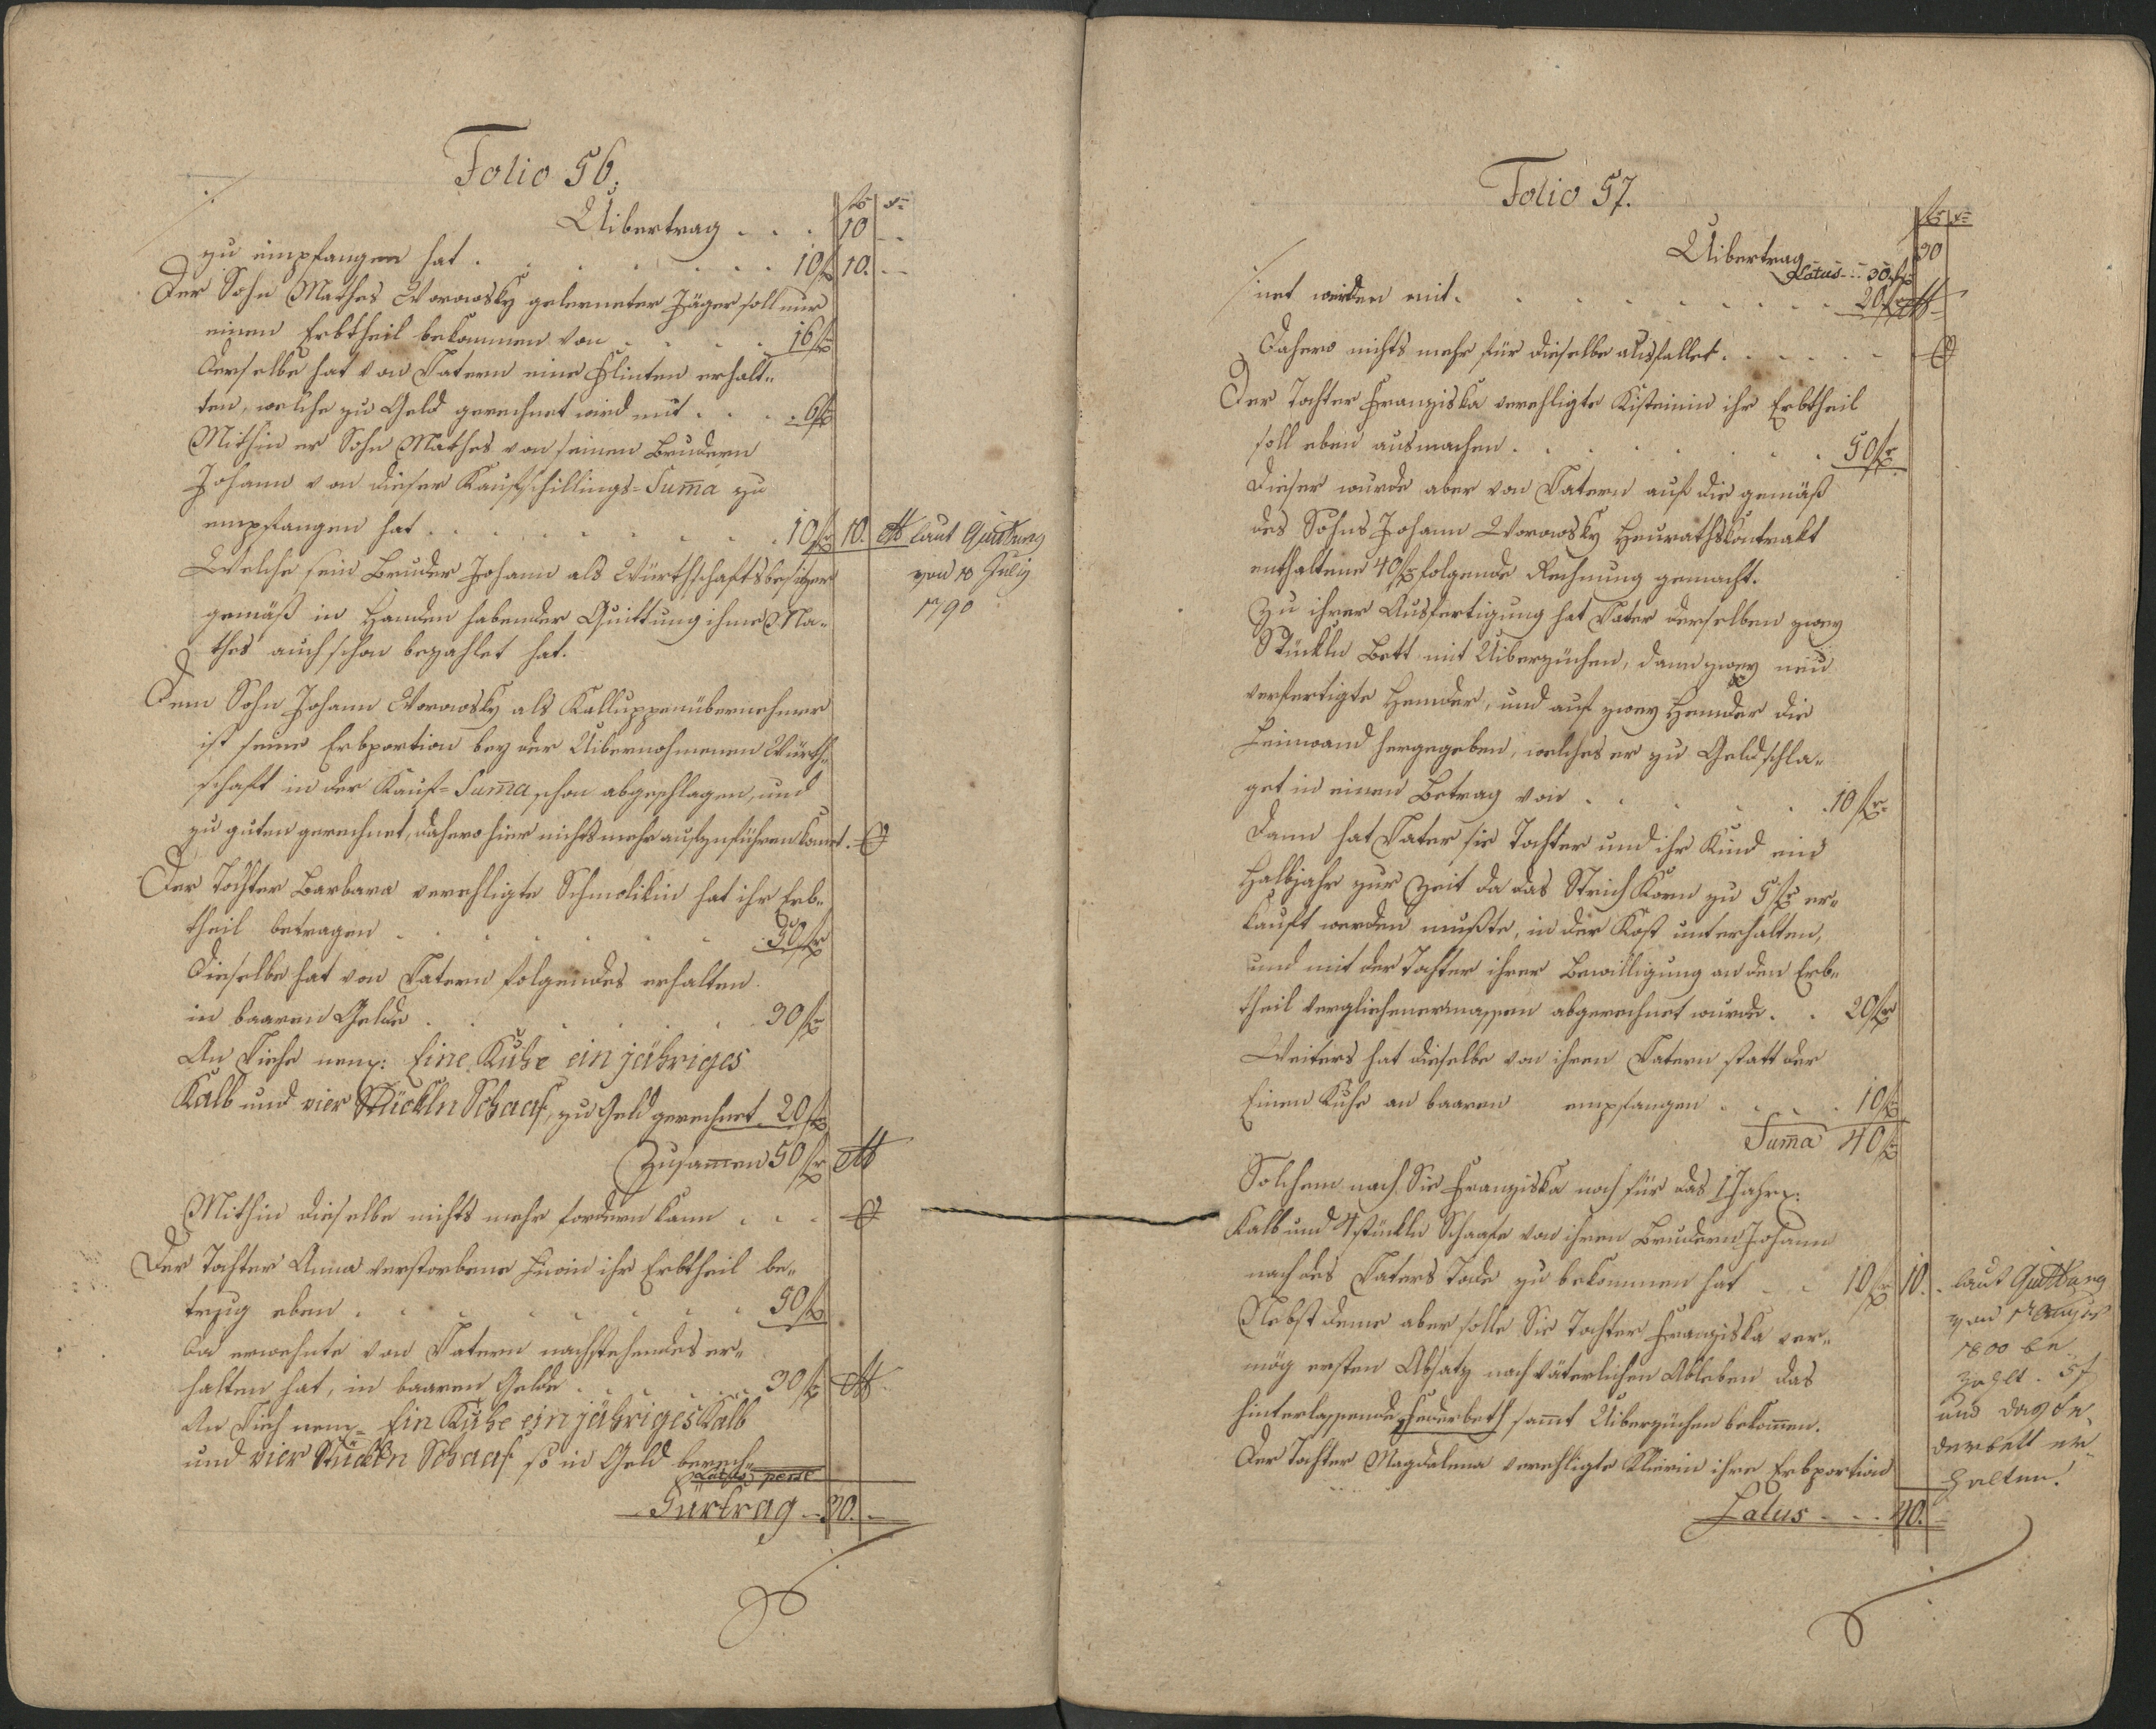 Folio 56.
fr xr
Uibertrag . . . 10 --
zu empfangen hat . . . . . . . 10 fr 10. --
Der Sohn Mathes Worowsky gelerneter Jäger soll nur
einen Erbtheil bekommen von . . . . 16 fr
Derselbe hat von Vatern eine Flinten erhalt-
ten, welche zu Geld gerechnet wird mit . . . . 6 fr
Mithin er Sohn Mathes von seinen Brudern
Johann von dieser Kaufschillings-Suma zu
empfangen hat . . . . . . . . 10 fr 10. laut Quittung
von 13 Julij
1790
Welche sein Bruder Johann als Würthschaftsbesitzer
gemäß in Handen habender Quittung ihme Ma-
thes auch schon bezahlet hat.
Dem Sohn Johann Worowsky als Kalluppenübernehmer
ist seine Erbportion bey der Uibernohmenen Würth-
schaft in der Kauf-Suma schon abgeschlagen, und
zu guten gerechnet, dahero hier nichts mehr aufzuführen komt.
Der Tochter Barbara verehligte Schmolikin hat ihr Erb-
theil betragen . . . . . . . 50 fr
Dieselbe hat von Vatern folgendes erhalten
in baaren Gelde . . . . . . 30 fr
An Viehe nem: Eine Kuhe ein jähriges
Kalb und vier Stückln Schaaf, zu Geld gerechnet 20 fr
Zusamen 50 fr
Mithin dieselbe nichts mehr fordern kann . . .
Der Tochter Anna verstorbene ihr Erbtheil be-
trug eben . . . . . . . . 50 fr
Da erwehnte von Vatern nachstehendes er-
halten hat, in baaren Gelde . . . . . 30 fr
An Vieh nem= Ein Kuhe ein jähriges Kalb
und vier Stückln Schaaf so in Geld berech-
Latus
Fürtrag - 30. -
Folio 57.
fr xr
Uibertrag 30
Latus --- 30 fr
net werden mit . . . . . . . . . 20 fr
Dahero nichts mehr für dieselbe ausfallet . . . . .
Der Tochter Franziska verehligte Kisteinin ihr Erbtheil
soll eben ausmachen . . . . . . . . 50 fr
Dieser wurde aber von Vatern auf die gemäß
des Sohns Johann Worowsky Heurathskontrakt
enthaltene 40 fr folgende Rechnung gemacht.
Zu ihrer Ausfertigung hat Vater derselben zwey
Stückln Bett mit Uiberzüchen, dann zwey neu
verfertigte Hemder, und auf zwey Hemder die
Leinwand hergegeben, welches er zu Geld schla-
get in einen Betrag von . . . . . . 10 fr
Dann hat Vater sie Tochter und ihr Kind ein
Halbjahr zur Zeit da das Strich Korn zu 5 fr er-
kauft werden mußte, in der Kost unterhalten,
und mit der Tochter ihrer Bewilligung an den Erb-
theil verglichenermassen abgerechnet wurde . . 20 fr
Weiters hat dieselbe von ihren Vatern statt der
Einen Kuhe an baaren empfangen . . . . 10 fr
Suma 40 fr
Solchem nach Sie Franziska noch für das 1 Jahr:
Kalb und 4 stückln Schaafe von ihren Brudern Johann
nach des Vaters Tode zu bekommen hat . . 10 fr 10. . laut Quittung
von 17 August
1800 be
zahlt . 5 f
und das fe
derbett er
halten.
Nebst deme aber solle Sie Tochter Franziska ver-
mög ersten Absatz nach väterlichen Ableben das
hinterlassende Federbeth samt Uiberzüchen bekomen.
Der Tochter Magdalena verehligte ihre Erbportion
Latus - - - 40. -